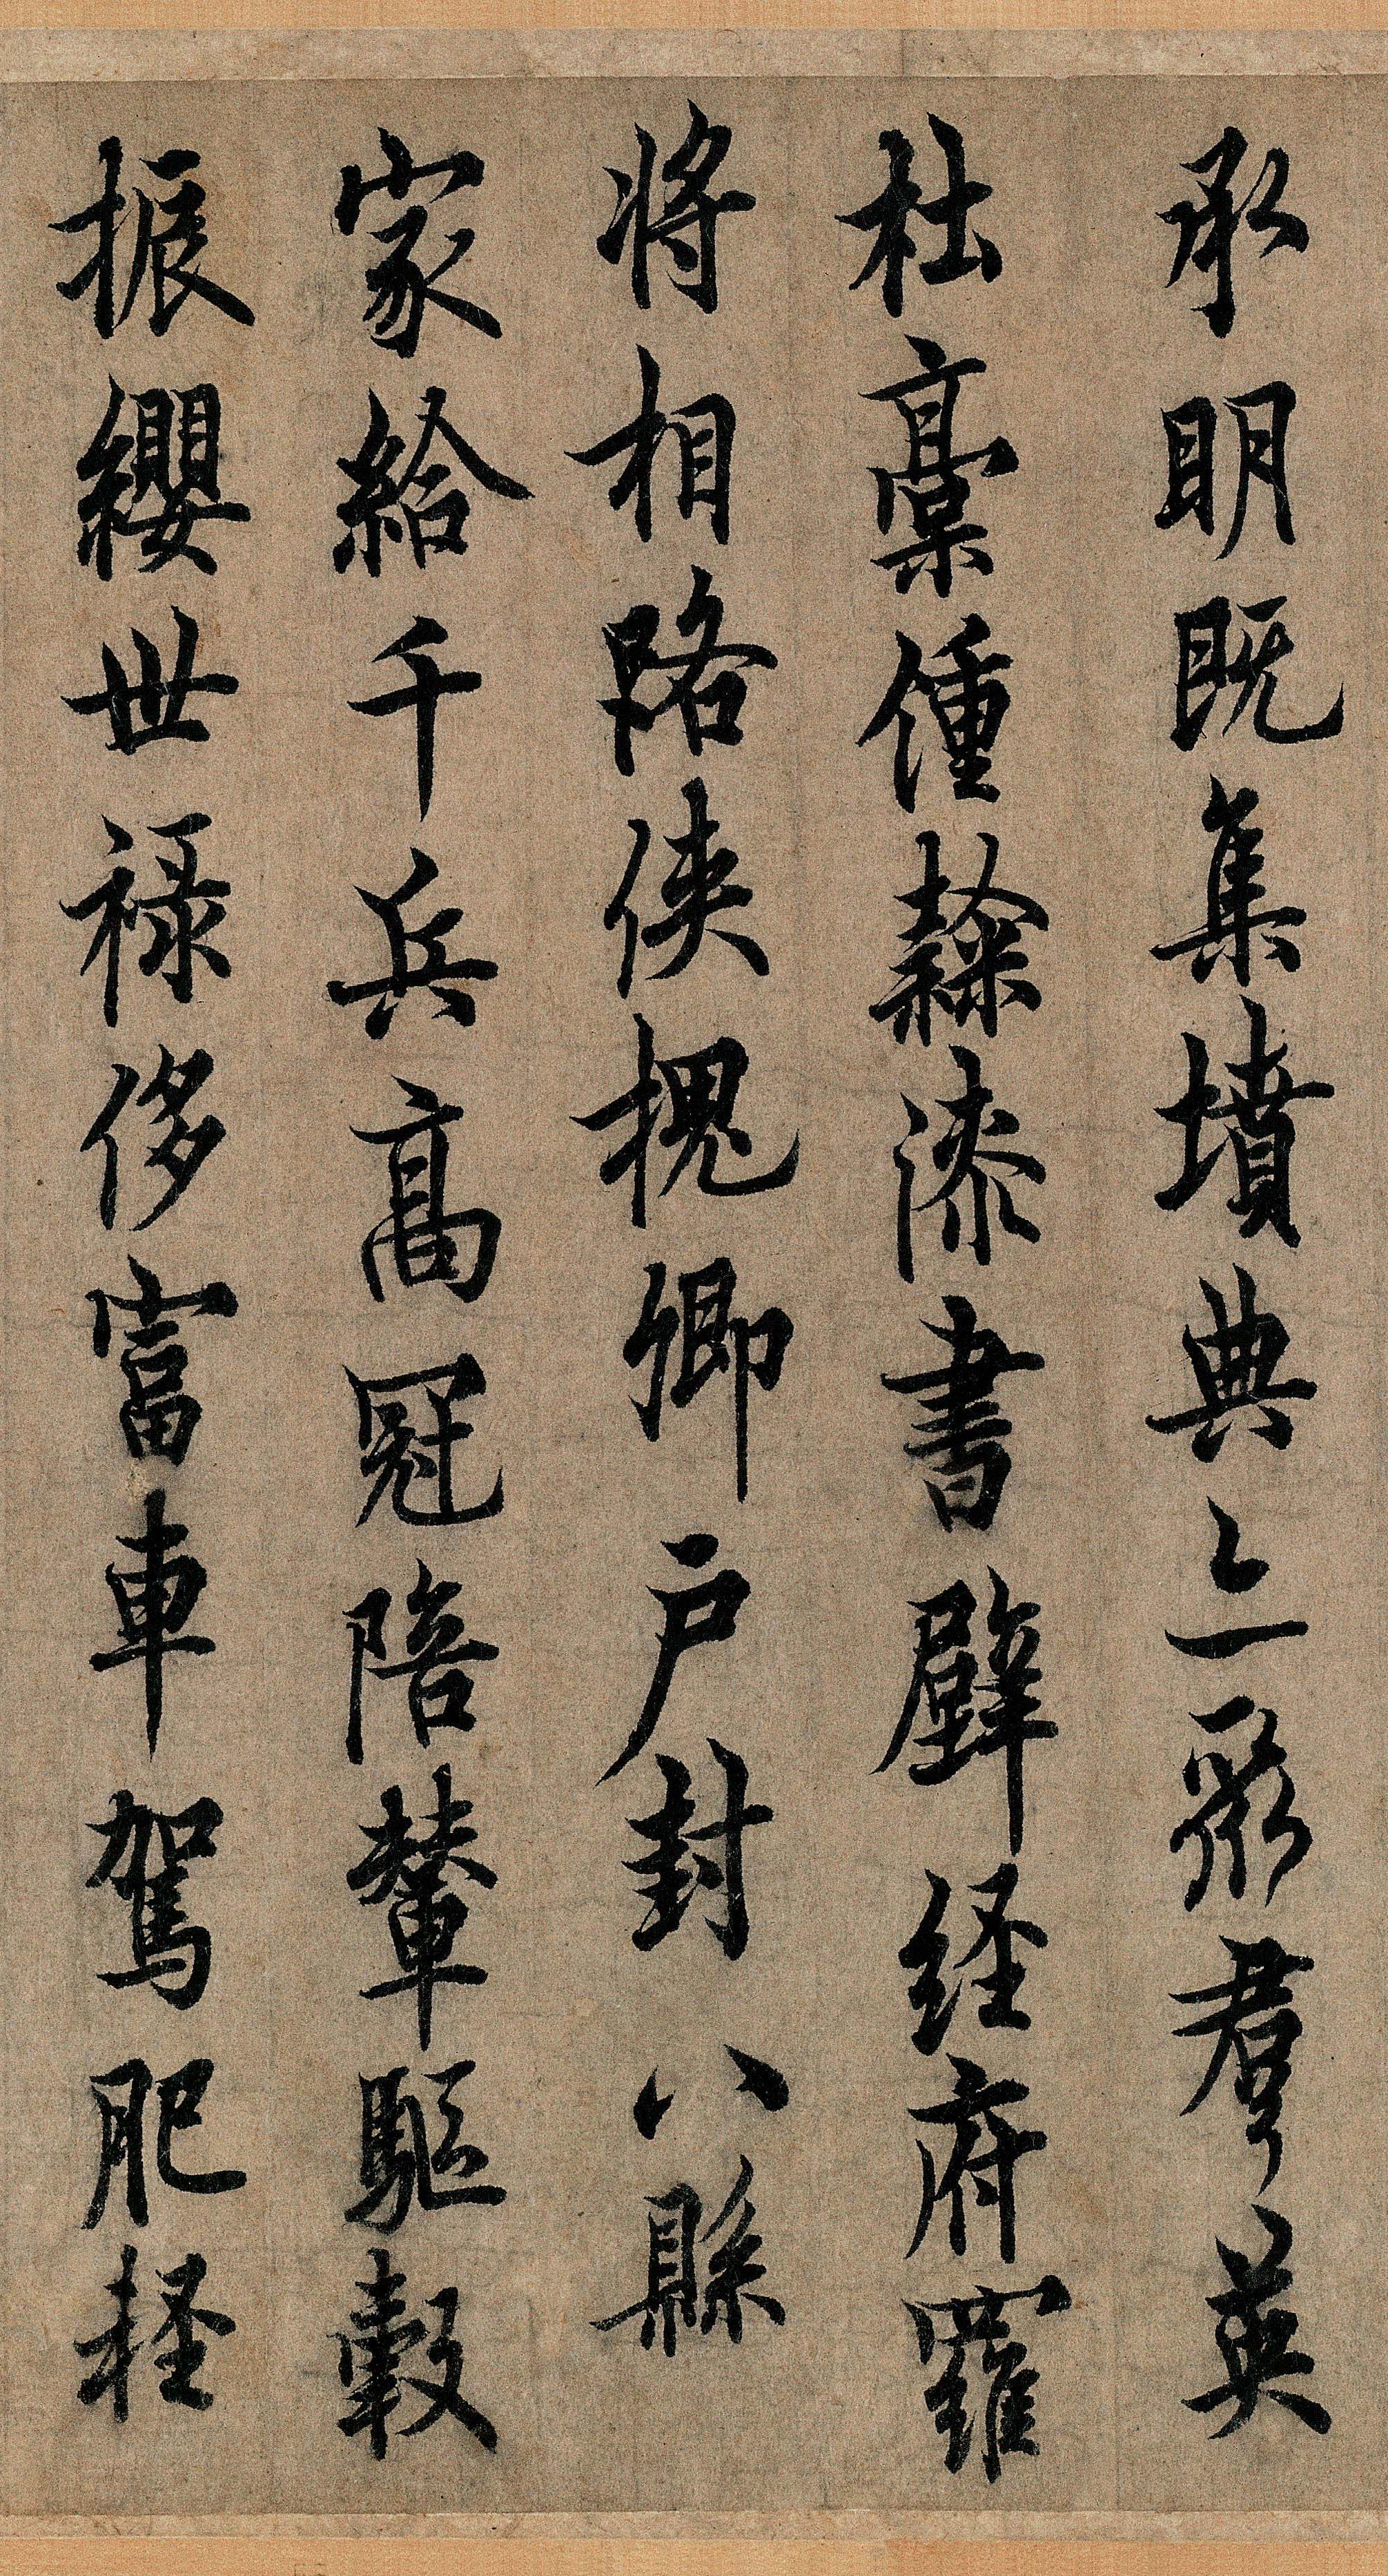 承明既集墳典亦聚羣英
杜稾鍾隸漆書壁經府羅
將相路俠槐卿户封八縣
家給千兵高冠陪輦驅轂
振纓世禄侈富車駕肥輕